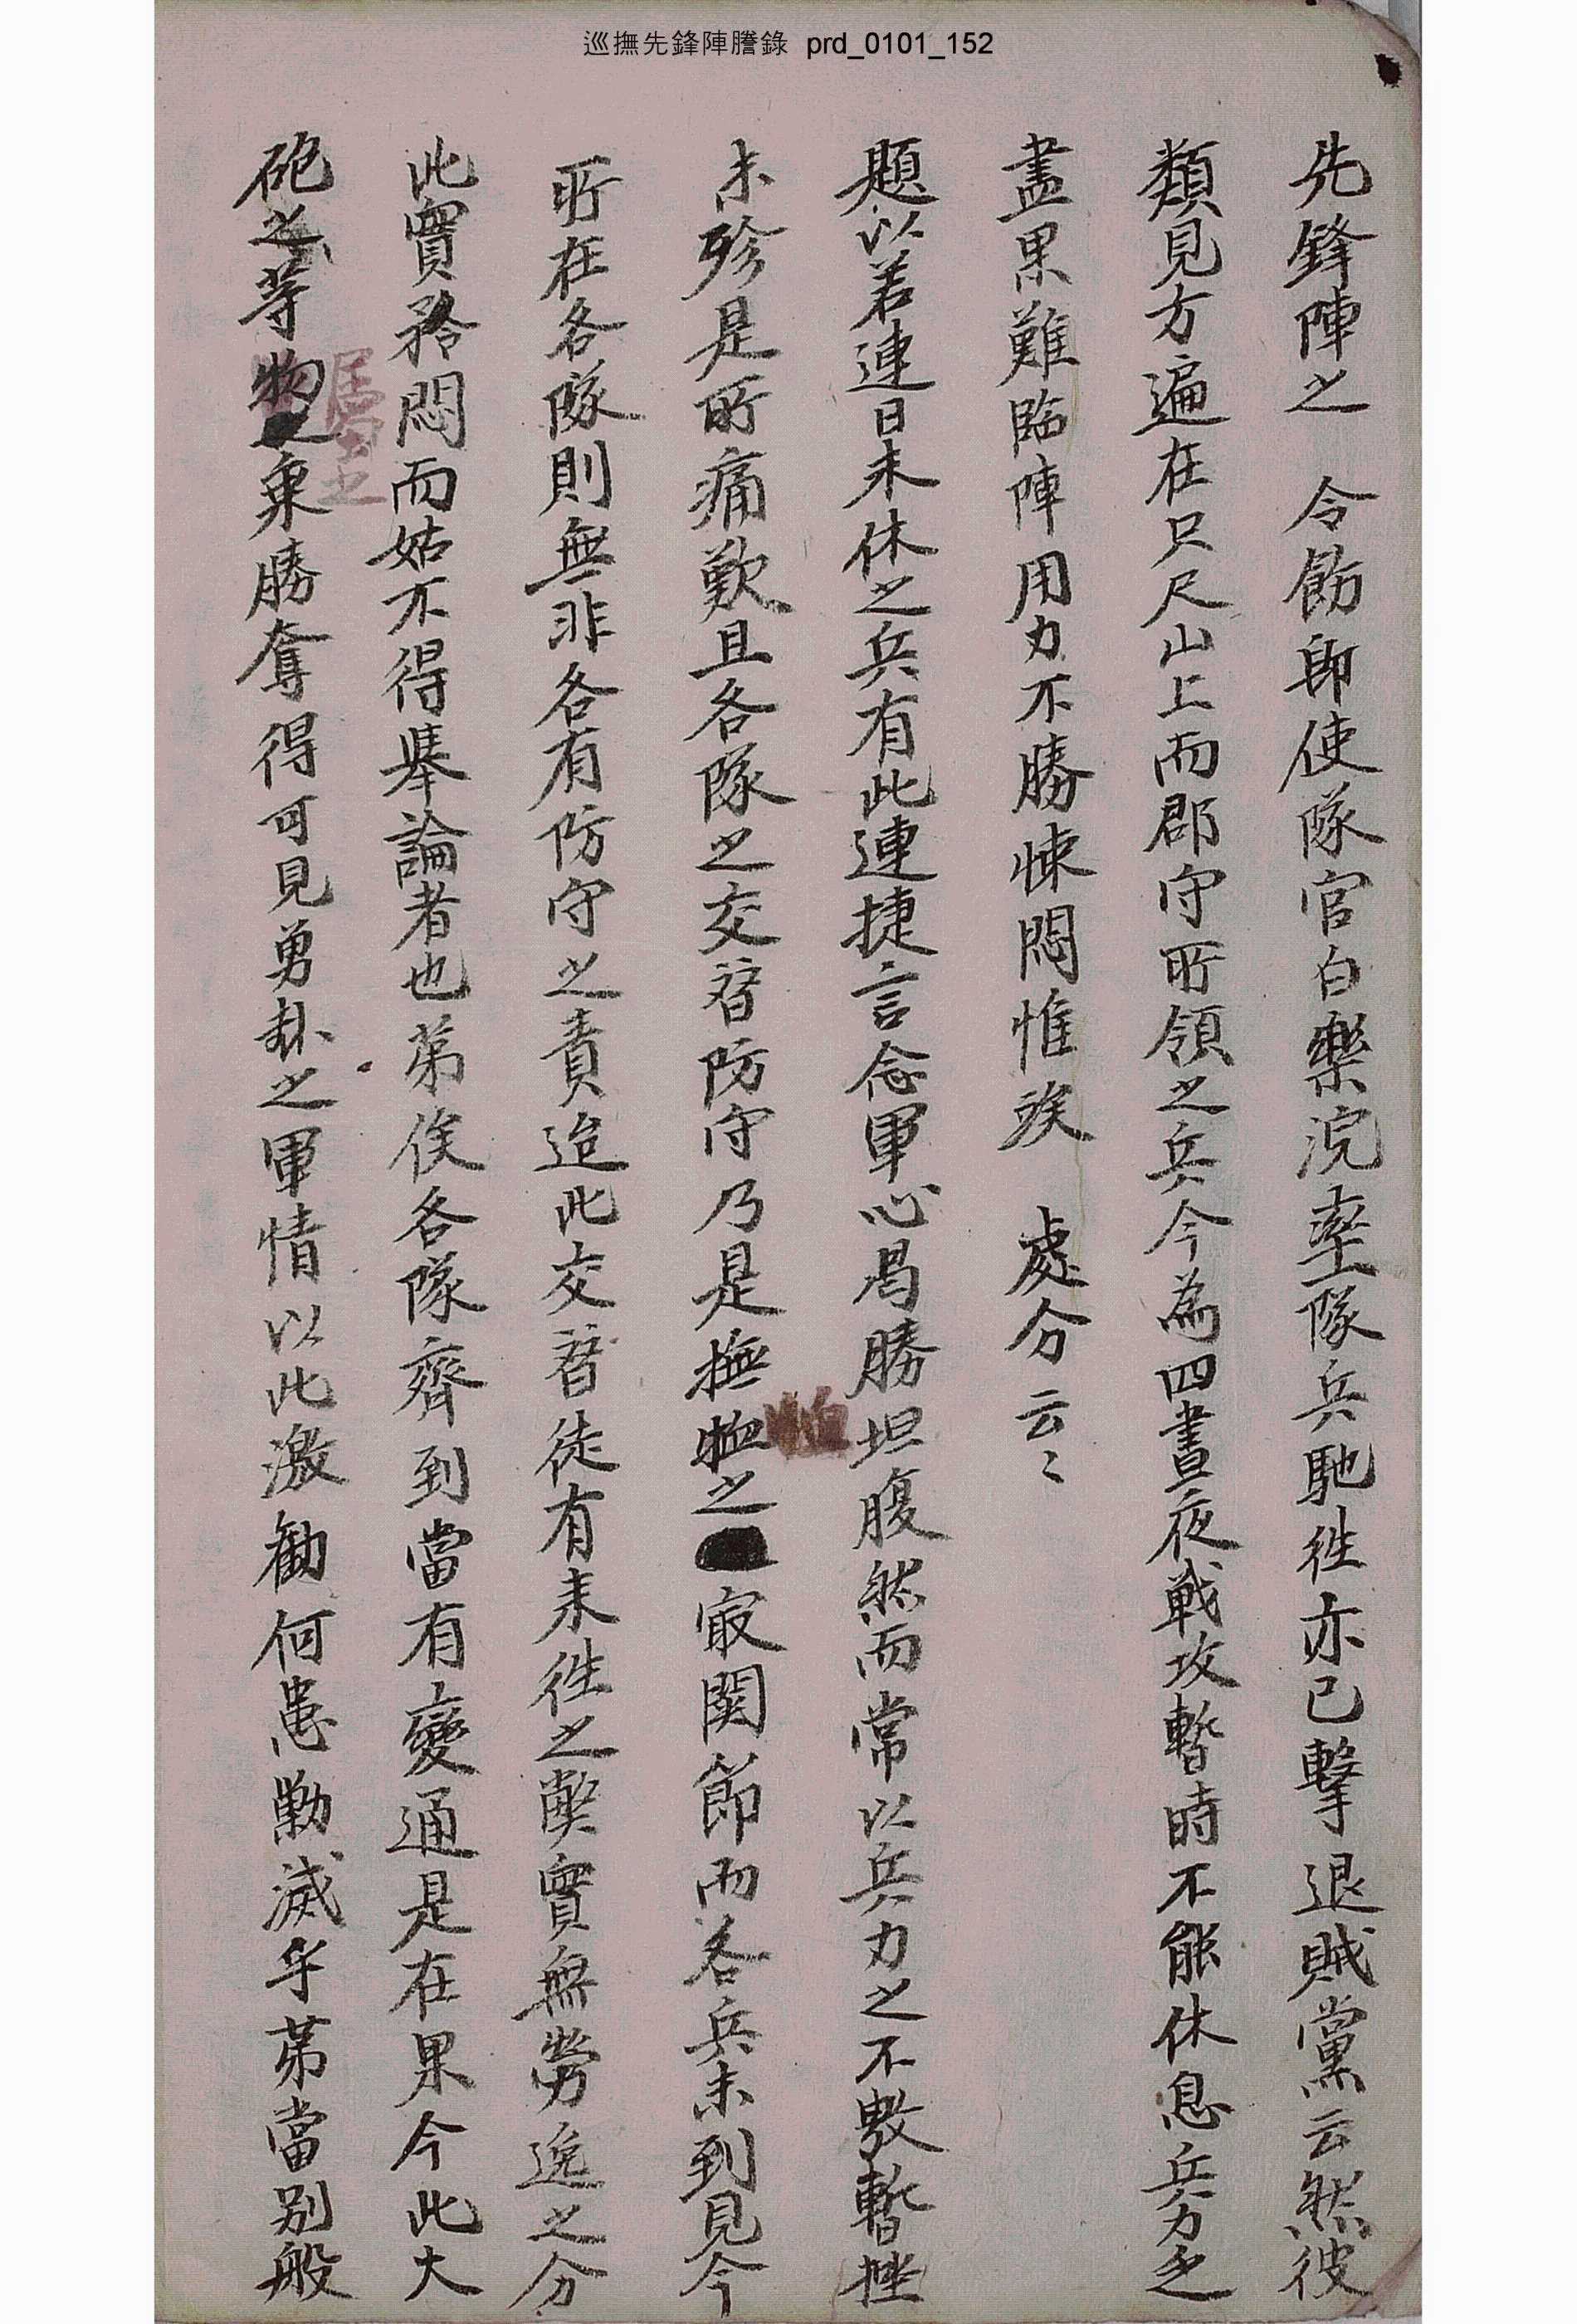 巡撫先鋒陣謄錄 prd_0101_152
先鋒陣之 令飭卽使隊官白樂浣率隊兵馳徃亦已擊退賊黨云然彼
類見方遍在只尺山上而郡守所領之兵今為四晝夜戰攻暫時不能休息兵力之
盡果難臨陣用力不勝悚悶惟竢 處分云〻
題以若連日未休之兵有此連捷言念軍心曷勝坦腹然而常以兵力之不敷暫挫
未殄是所痛歎且各隊之交替防守乃是撫恤之㝡関節而各兵未到見今
所在各隊則無非各有防守之責迨此交替徒有来徃之獘實無勞逸之分
此實矜悶而姑不得擧論者也苐俟各隊齊到當有變通是在果今此大
砲之等物之棄勝奪得可見勇赴之軍情以此激勸何患勦滅乎苐當別般